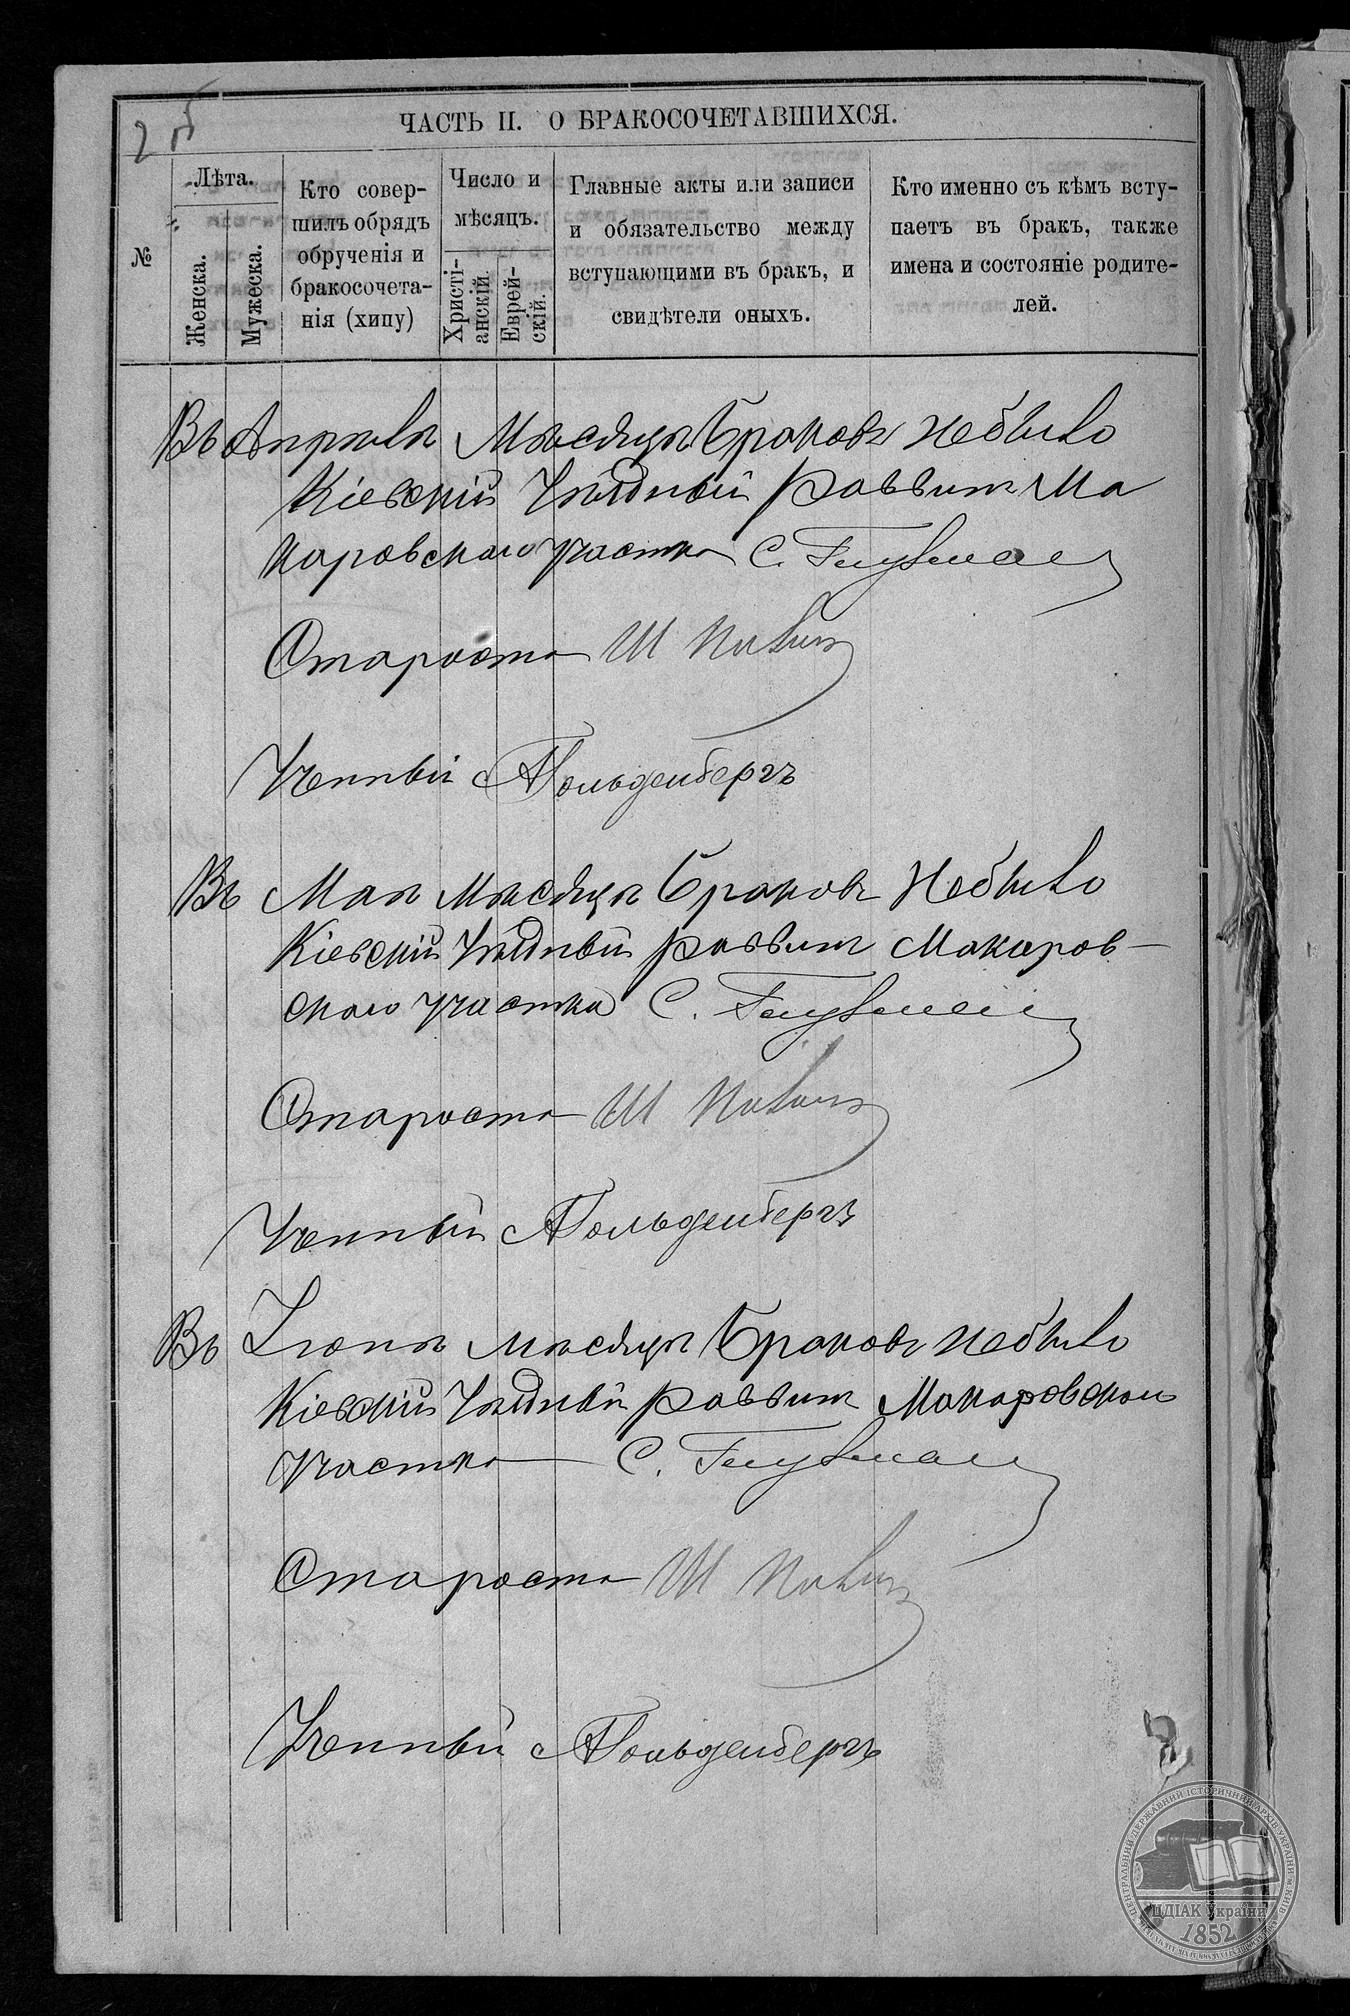 ЧАСТЬ II. О БРАКОСОЧЕТАВШИХСЯ.
№
Лѣта.
Женска.
Мужеска.
Кто совер-
шилъ обрядъ
обрученія и
бракосочета-
нія (хипу)
Число и
мѣсяцъ.
Христі-
анскій
Еврей-
скій.
Главные акты или записи
и обязательство между
вступающими въ бракъ, и
свидѣтели оныхъ.
Кто именно съ кѣмъ всту-
паетъ въ бракъ, также
имена и состояніе родите-
лей.
Въ Апрѣлѣ Мѣсяцѣ Браковъ Небыло
Кіевскій Уѣздный Раввинъ Ма
каровскаго Участка С. Глузман
Староста Ш
Ученый А Гольденбергъ
Въ Маѣ Мѣсяцѣ Браковъ Небыло
Кіевскій Уѣздный Раввинъ Макаров-
скаго Участка С. Глузман
Староста Ш
Ученый А Гольденбергъ
Въ Іюнѣ Мѣсяцѣ Браковъ Небыло
Кіевскій Уѣздный Раввинъ Макаровскаго
Участка С. Глузман
Староста Ш
Ученый А Гольденбергъ
ЦЕНТРАЛЬНИЙ ДЕРЖАВНИЙ ІСТОРИЧНИЙ АРХІВ УКРАЇНИ м.КИЇВ
ЦДІАК України
1852